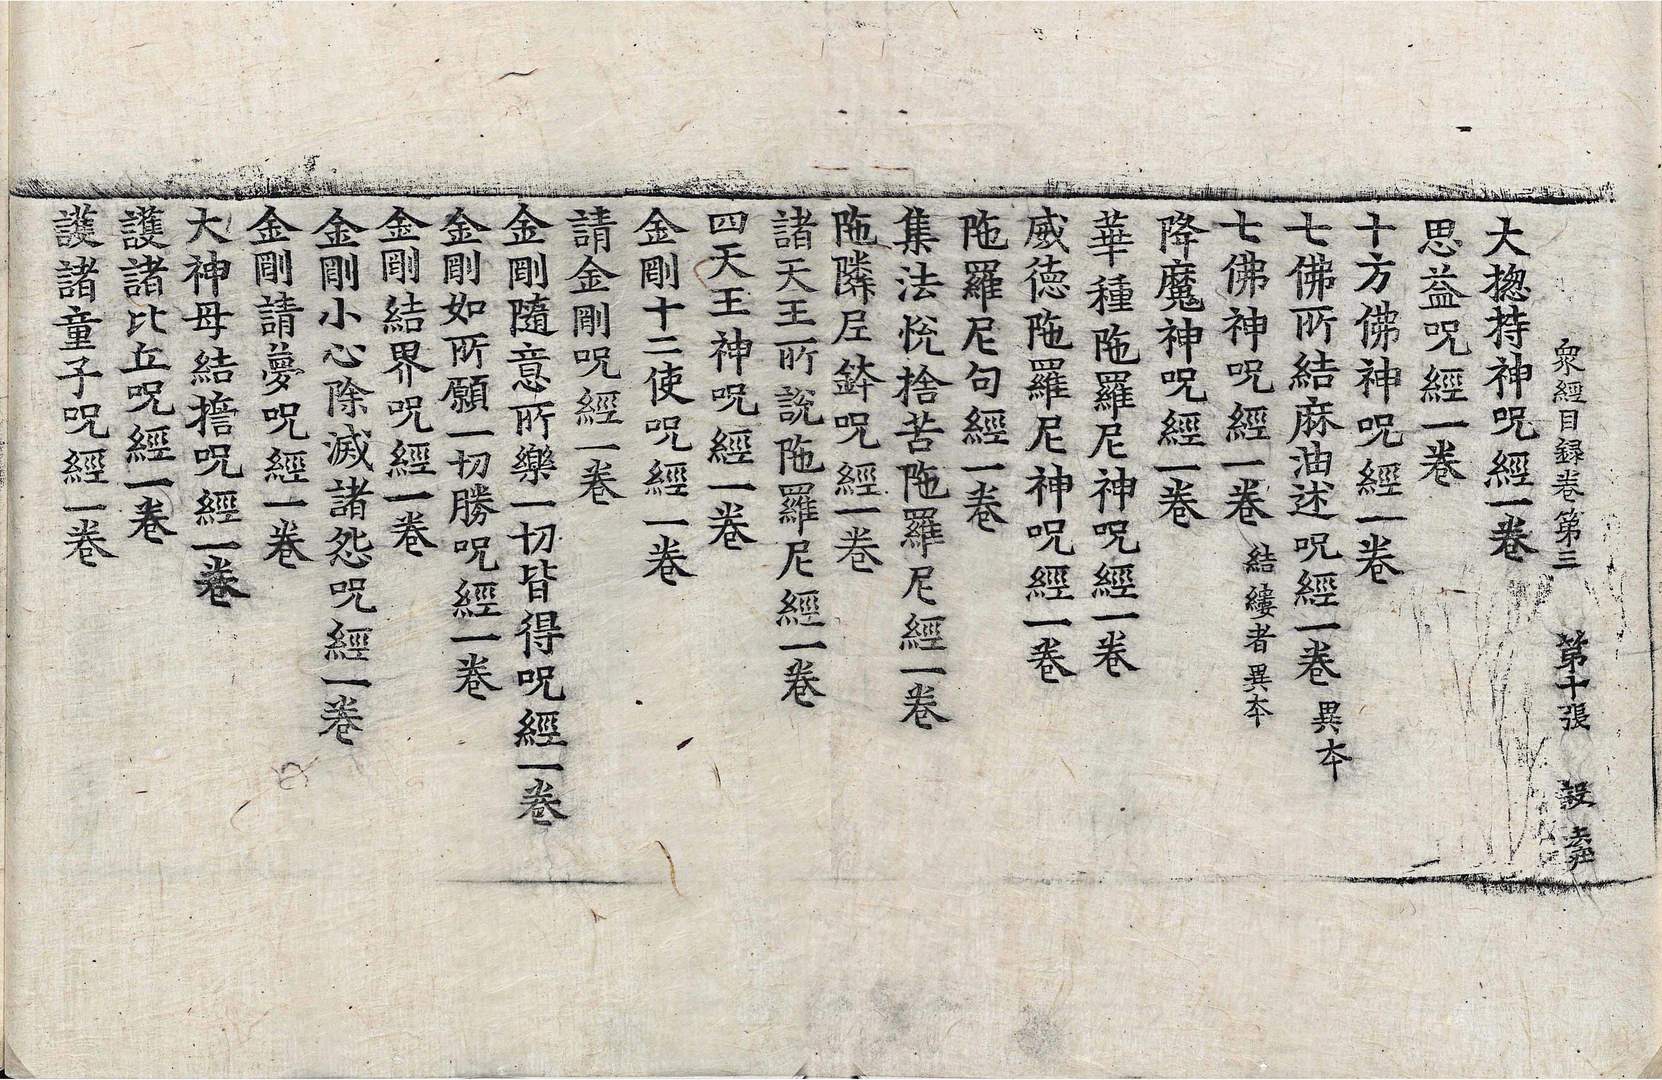 衆經目録卷第三 第十張 設
大揔持神呪經一卷
思益呪經一卷
十方佛神呪經一卷
七佛所結麻油述呪經一卷 異本
七佛神呪經一卷 結縷者異本
降魔神呪經一卷
華種陁羅尼神呪經一卷
威德陁羅尼神呪經一卷
陁羅尼句經一卷
集法恱捨苦陁羅尼經一卷
陁隣尼鉢呪經一卷
諸天王所説陁羅尼經一卷
四天王神呪經一卷
金剛十二使呪經一卷
請金剛呪經一卷
金剛隨意所樂一切皆得呪經一卷
金剛如所願一切勝呪經一卷
金剛結界呪經一卷
金剛小心除滅諸怨呪經一卷
金剛請夢呪經一卷
大神母結擔呪經一卷
護諸比丘呪經一卷
護諸童子呪經一卷